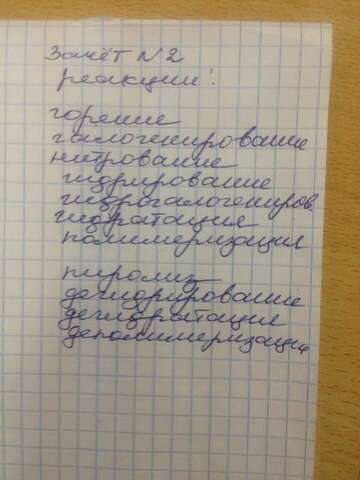 Зачёт №2
реакции:
горение
галогенирование
нитрование
гидрирование
гидрогалогениров.
гидратация
полимеризация
пиролиз
дегидрирование
дегидратация
деполимеризация